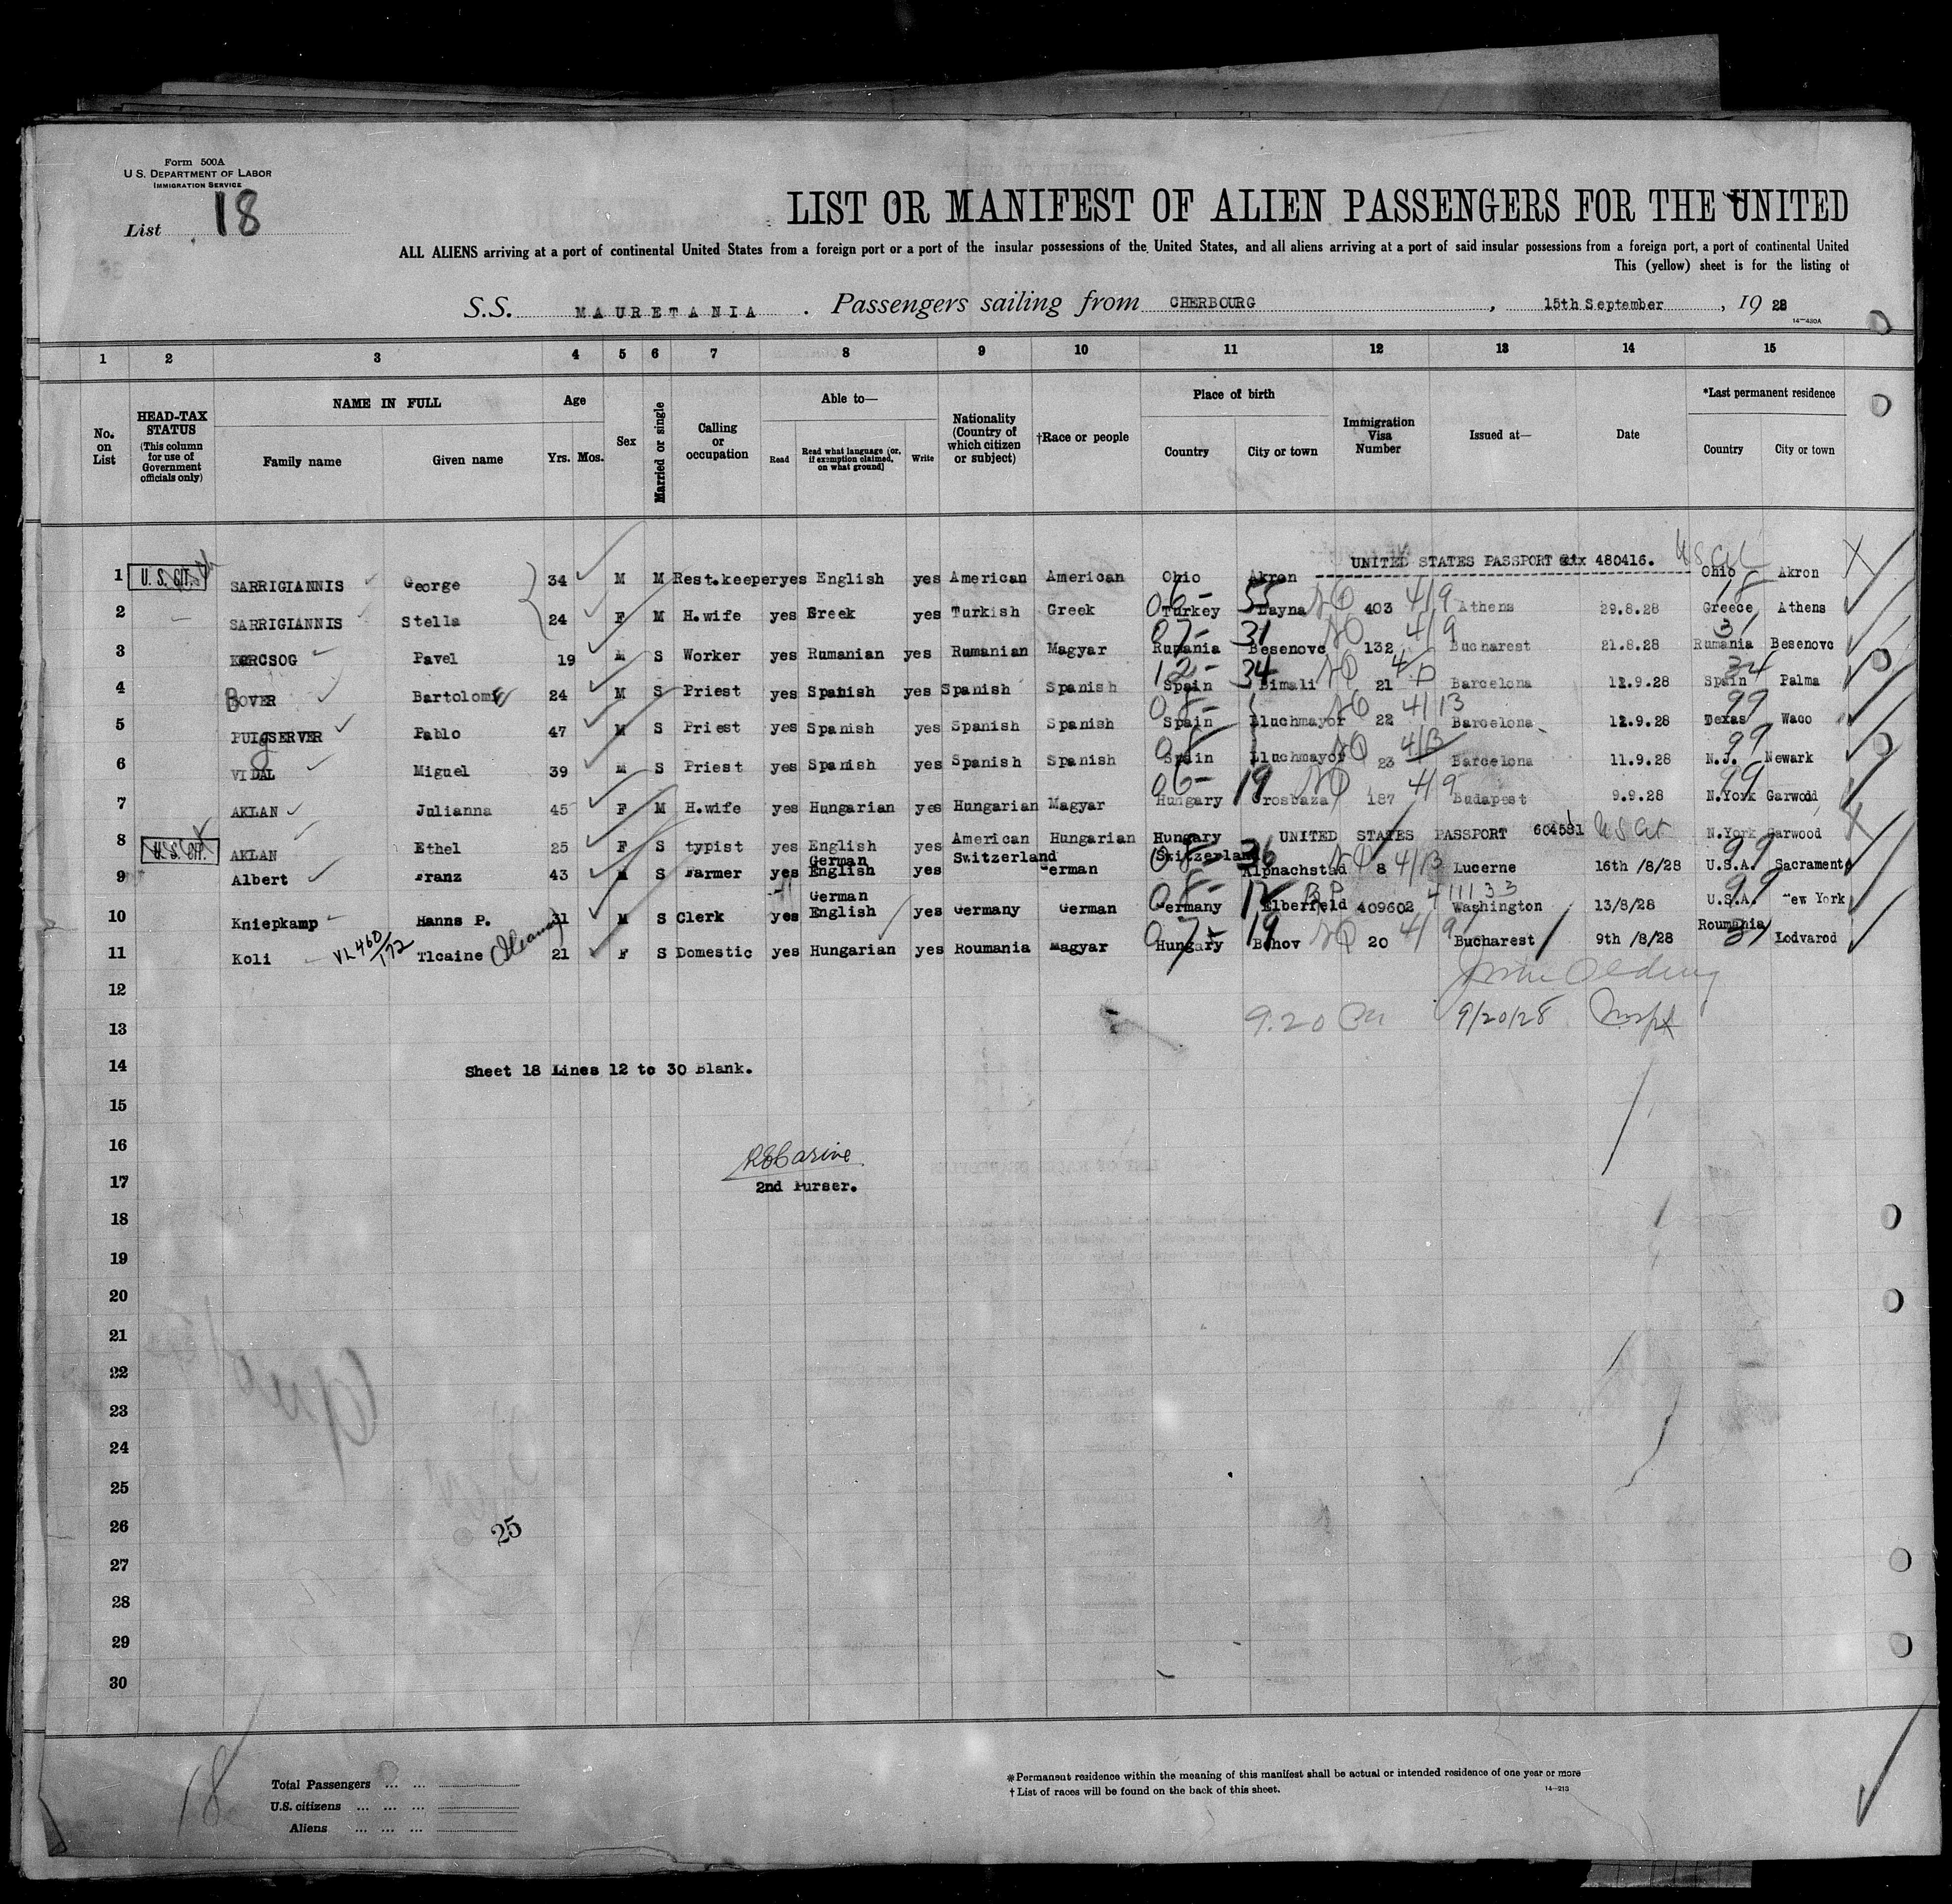 Form 500A
U. S. DEPARTMENT OF LABOR
IMMIGRATION SERVICE
List 18
LIST OR MANIFEST OF ALIEN PASSENGERS FOR THE UNITED
ALL ALIENS arriving at a port of continental United States from a foreign port or a port of the insular possessions of the United States, and all aliens arriving at a port of said insular possessions from a foreign port, a port of continental United
This (yellow) sheet is for the listing of
S.S. MAURETANIA . Passengers sailing from CHERBOURG , 15th September , 19 28
14—430A
1 2 3 4 5 6 7 8 9 10 11 12 13 14 15
No. on List
HEAD-TAX STATUS
(This column for use of Government officials only)
NAME IN FULL
Family name Given name
Age
Yrs. Mos.
Sex
Married or single
Calling or occupation
Able to—
Read Read what language (or, if exemption claimed, on what ground) Write
Nationality (Country of which citizen or subject)
†Race or people
Place of birth
Country City or town
Immigration Visa Number
Issued at—
Date
*Last permanent residence
Country City or town
1 U. S. CIT. SARRIGIANNIS George 34 M M Rest.keeper yes English yes American American Ohio Akron UNITED STATES PASSPORT 480416. US Cit Ohio Akron
2 SARRIGIANNIS Stella 24 F M H.wife yes Greek yes Turkish Greek Turkey 06- 55 403 4/9 Athens 29.8.28 Greece Athens
3 KERCSOG Pavel 19 M S Worker yes Rumanian yes Rumanian Magyar Rumania Besenovo 07- 31 132 4/9 Bucharest 21.8.28 Rumania Besenovo
4 BOVER Bartolome 24 M S Priest yes Spanish yes Spanish Spanish Spain Bimali 12- 34 21 Barcelona 12.9.28 Spain Palma
5 PUIGSERVER Pablo 47 M S Priest yes Spanish yes Spanish Spanish Spain Lluchmayor 22 4/13 Barcelona 12.9.28 Texas Waco 99
6 VIDAL Miguel 39 M S Priest yes Spanish yes Spanish Spanish Spain Lluchmayor 23 4/13 Barcelona 11.9.28 N.J. Newark 99
7 AKLAN Julianna 45 F M H.wife yes Hungarian yes Hungarian Magyar Hungary Orosbaza 06- 19 187 4/9 Budapest 9.9.28 N.York Garwood 99
8 U. S. CIT. AKLAN Ethel 25 F S typist yes English yes American Hungarian Hungary UNITED STATES PASSPORT 604531 US Cit N.York Garwood
9 Albert Franz 43 M S Farmer yes German English yes Switzerland German Switzerland Alpnachstad 36 8 4/13 Lucerne 16th /8/28 U.S.A. Sacramento
10 Kniepkamp Hanns P. 31 M S Clerk yes German English yes Germany German Germany Elberfeld 409602 Washington 13/8/28 U.S.A. New York 99
11 Koli VL 460/172 Tlcaine 21 F S Domestic yes Hungarian yes Roumania Magyar Hungary Bohov 07- 19 20 4/9 Bucharest 9th /8/28 Roumania Lodvarod
12
13 9.20 9/20/28 Inspt
14 Sheet 18 Lines 12 to 30 Blank.
15
16
17 2nd Purser.
18
19
20
21
22
23
24
25
26 25
27
28
29
30
18
Total Passengers ... ...
U.S. citizens ... ... ...
Aliens ... ... ...
*Permanent residence within the meaning of this manifest shall be actual or intended residence of one year or more
† List of races will be found on the back of this sheet. 14—213